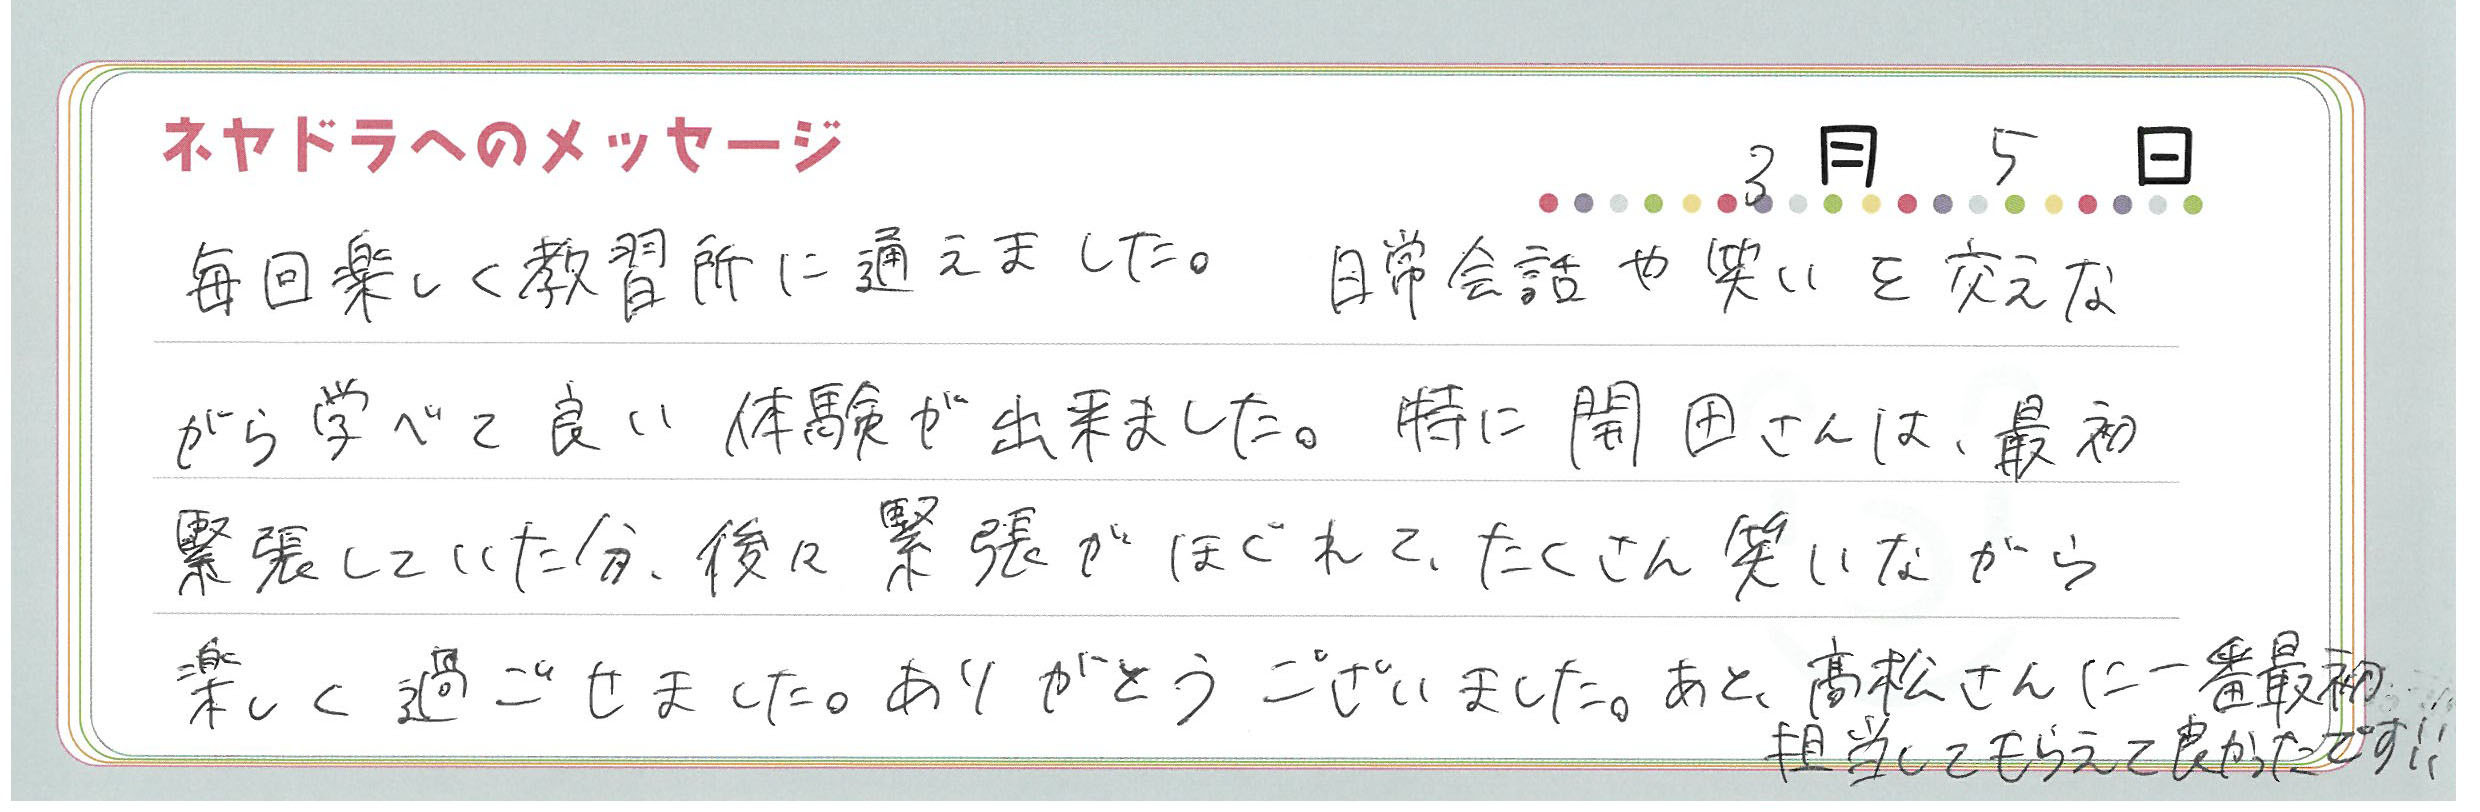 ネヤドラへのメッセージ
3月5日
毎回楽しく教習所に通えました。 日常会話や笑いを交えな
がら学べて良い体験が出来ました。特に開田さんは、最初
緊張していた分、後に緊張がほぐれて、たくさん笑いながら
楽しく過ごせました。ありがとうございました。あと、高松さんに一番最初
担当してもらえて良かったです!!